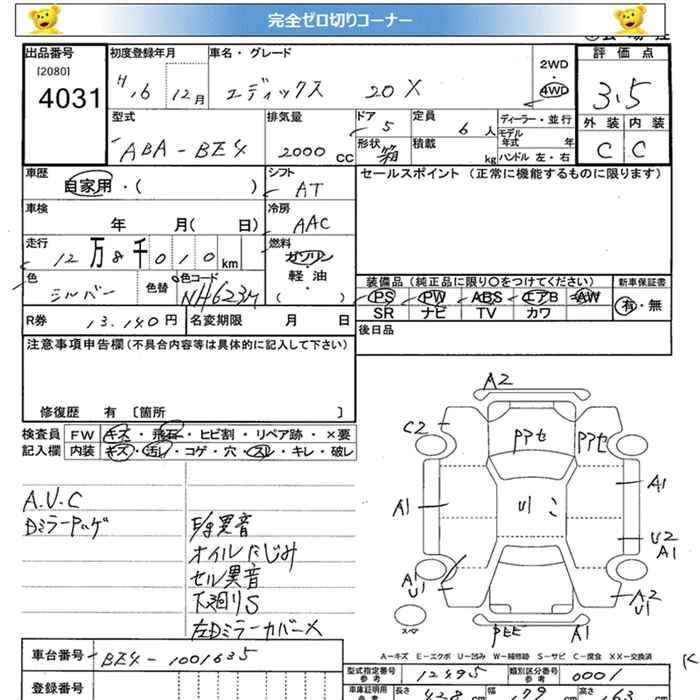 完全ゼロ切りコーナー
出品番号 初度登録年月 車名・グレード 2WD 評価点
[2080] 4031 H.6 12月 エディックス 20X 4WD 3.5
型式 排気量 ドア 5 定員 6人 ディーラー・並行 外装 内装
ABA-BE4 2000cc 形状 箱 積載 kg モデル年式 年 C C
ハンドル 左・右
車歴 自家用・( ) シフト AT セールスポイント (正常に機能するものに限ります)
車検 年 月( 日) 冷房 AAC
走行 12万8千010km 燃料 ガソリン 軽油 ( ・ )
色 シルバー 色替 色コード NH623M
装備品 (純正品に限り○をつけてください) 新車保証書
PS PW ABS エアB AW 有・無
SR ナビ TV カワ
R券 13,140円 名変期限 月 日 後日品
注意事項申告欄 (不具合内容等は具体的に記入して下さい)
修復歴 有 [箇所 ]
検査員 FW キズ・飛石・ヒビ割・リペア跡・×要
記入欄 内装 キズ・汚レ・コゲ・穴・スレ・キレ・破レ
A.U.C
Dミラー
異音
オイルにじみ
セル異音
下廻りS
左Dミラーカバー×
A2
C2
PアセPアセ
A1 A1
U2
A1
A1
U1
A2
U1
A1
スペア
A-キズ E-エクボ U-凹み W-補修跡 S-サビ C-腐食 XX-交換済
車台番号 BE4-1001635
型式指定番号 参考 12495 類別区分番号 参考 0001
登録番号 車庫証明用 参考 長さ 428cm 幅 179cm 高さ 163cm